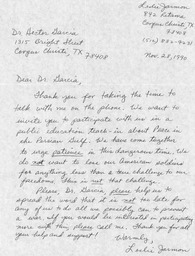 Leslie Jarmon
846 Litana
Corpus Christi, TX
78408
(512) 882-9431
Dr. Hector Garcia
1315 Bright Street
Corpus Christi, TX 78408
Nov. 28, 1990
Dear Dr. Garcia,
Thank you for taking the time to
talk with me on the phone. We want to
invite you to participate with us in a
public education teach-in about Peace in
the Persian Gulf. We have come together
to urge patience in this dangerous time. We
do not want to lose our American soldiers
for anything less than a true challenge to our
freedom. This is not that challenge.
Please, Dr. Garcia, please help us to
spread the word that it is not too late for
any of us to do all we possibly can to prevent
a war. If you would be interested in participating
more with this, please call me. Thank you for all
your help and support!
Warmly,
Leslie Jarmon